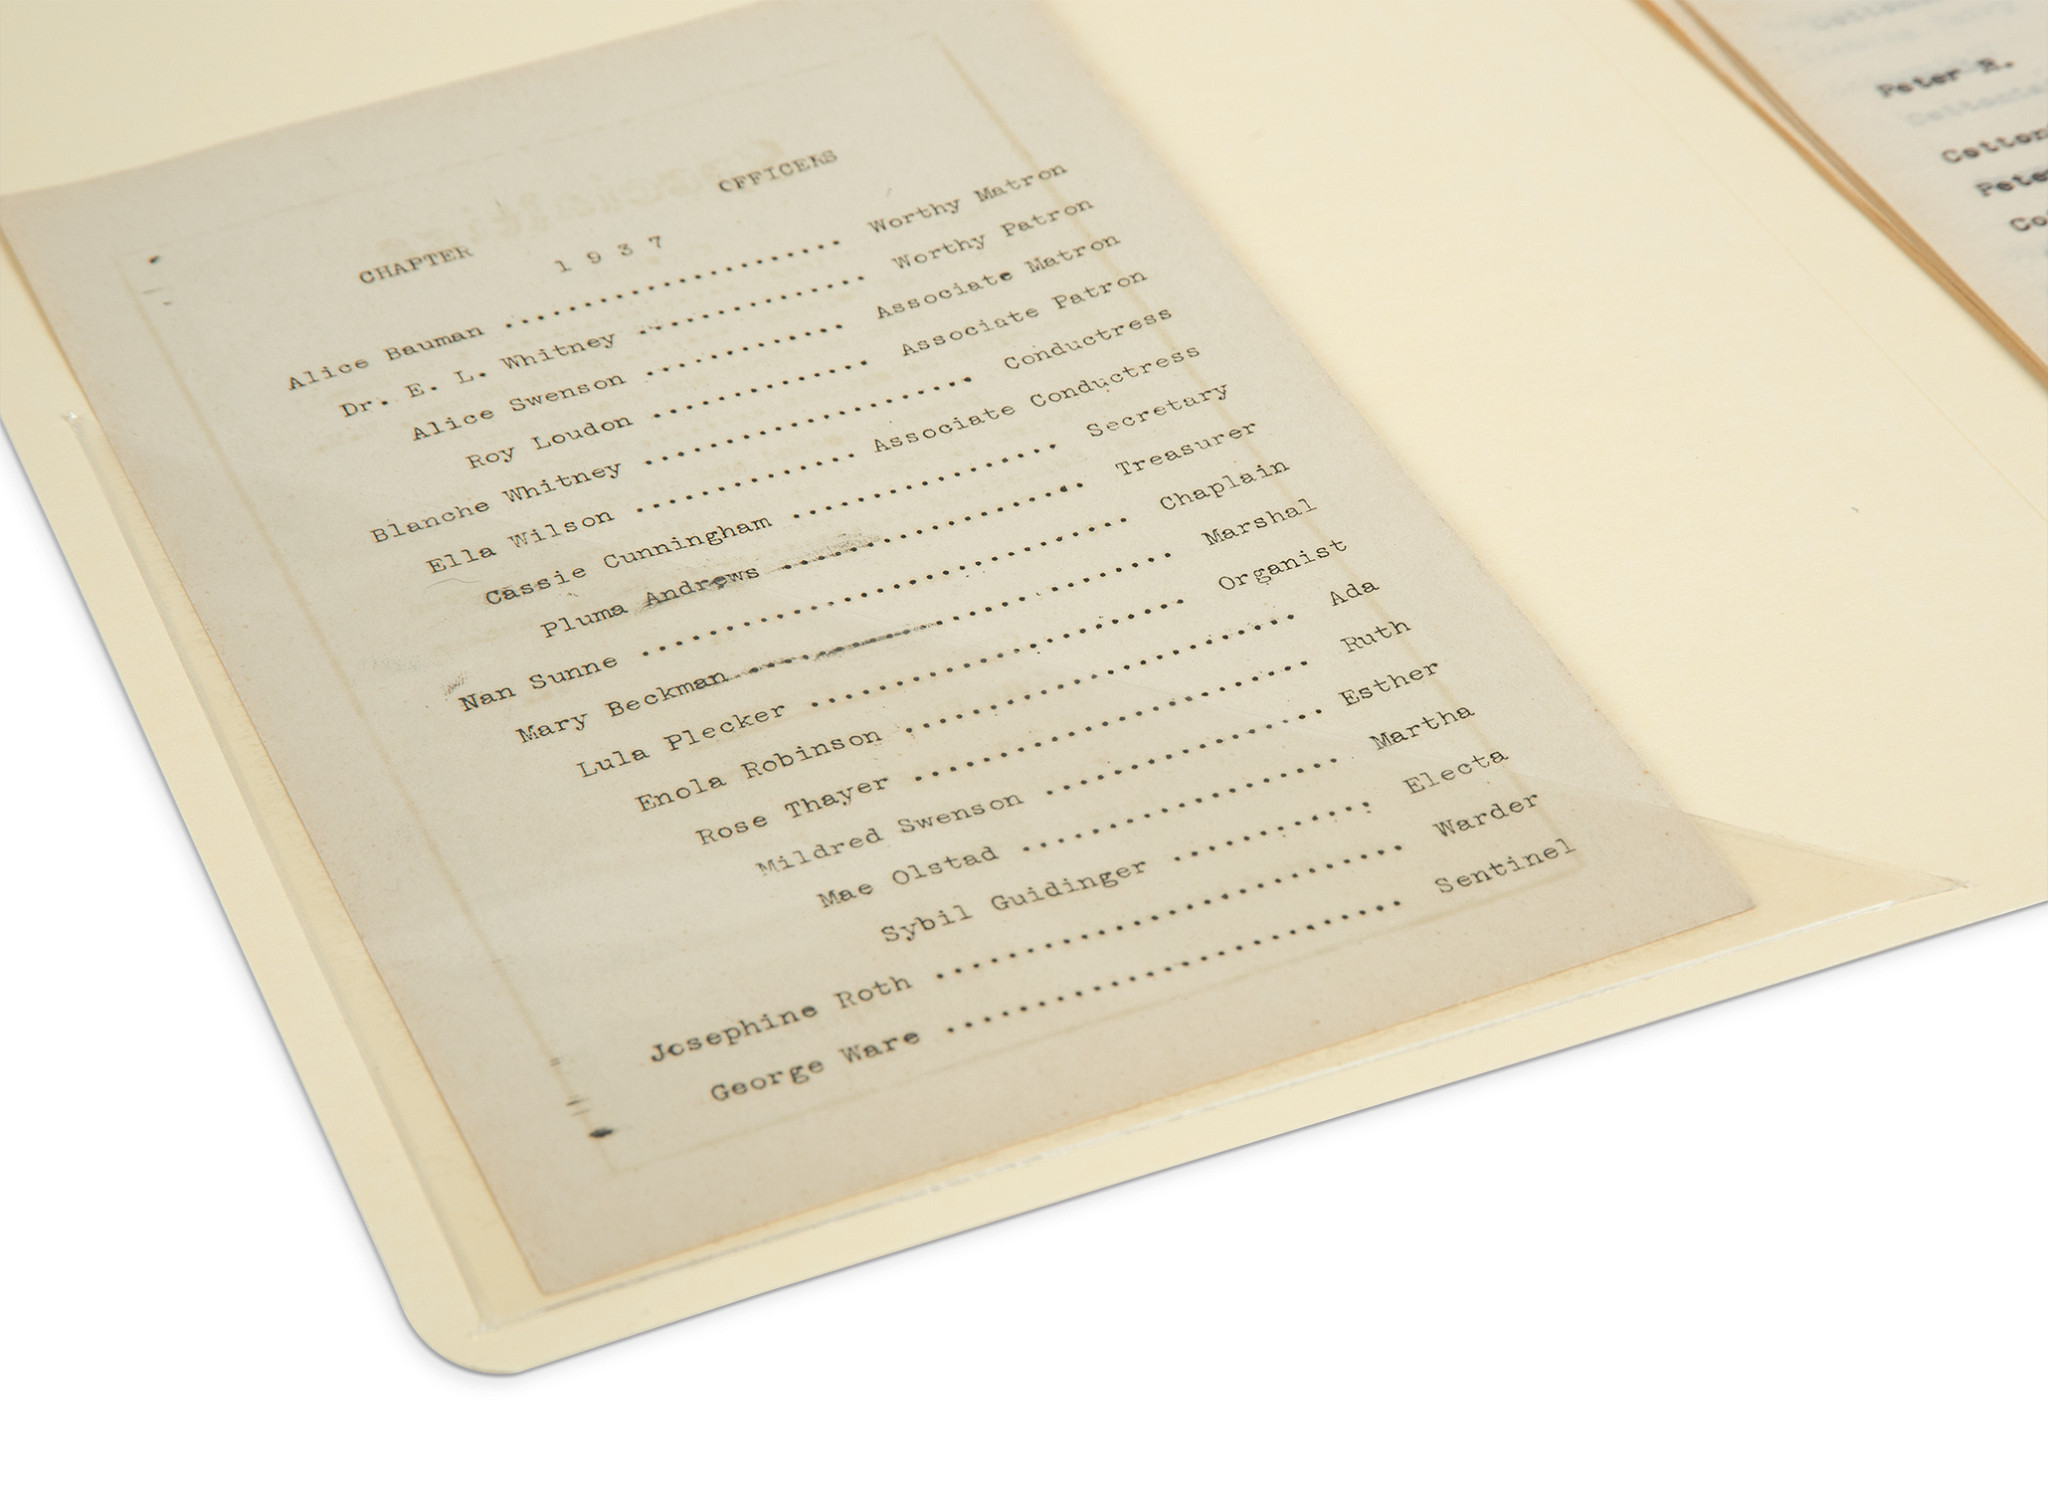 CHAPTER OFFICERS
1 9 3 7
Alice Bauman .......................... Worthy Matron
Dr. E. L. Whitney .................. Worthy Patron
Alice Swenson ................ Associate Matron
Roy Loudon ................. Associate Patron
Blanche Whitney .......................... Conductress
Ella Wilson ................. Associate Conductress
Cassie Cunningham ..................... Secretary
Pluma Andrews ........................ Treasurer
Nan Sunne ...................................... Chaplain
Mary Beckman ................................. Marshal
Lula Plecker ............................. Organist
Enola Robinson .............................. Ada
Rose Thayer .............................. Ruth
Mildred Swenson ...................... Esther
Mae Olstad ........................ Martha
Sybil Guidinger ............... Electa
Josephine Roth .................................... Warder
George Ware ................................... Sentinel
Peter R.